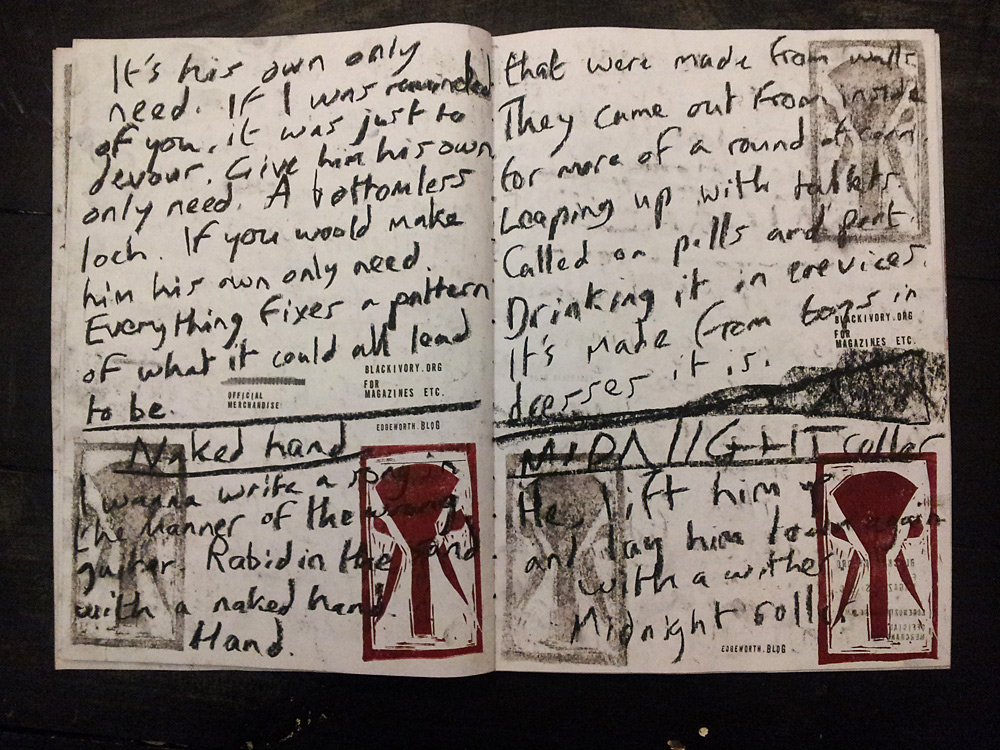 It's his own only
need. If I was reminded
of you, it was just to
devour. Give him his own
only need. A bottomless
loch. If you would make
him his own only need.
Everything fixes a pattern
of what it could all lead
to be.
OFFICIAL
MERCHANDISE
BLACKIVORY.ORG
FOR
MAGAZINES ETC.
EDGEWORTH.BLOG
Naked hand
I wanna write a song in
the manner of the wrong
guitar. Rabid in the sand
with a naked hand.
Hand.
that were made from walls.
They came out from inside
for more of a round of
Leaping up with tablets.
Called on pills and
Drinking it in crevices.
It's made from in
dresses it is.
BLACKIVORY.ORG
FOR
MAGAZINES ETC.
MIDNIGHT collar
He, lift him up
and lay him again
with a
Midnight
EDGEWORTH.BLOG